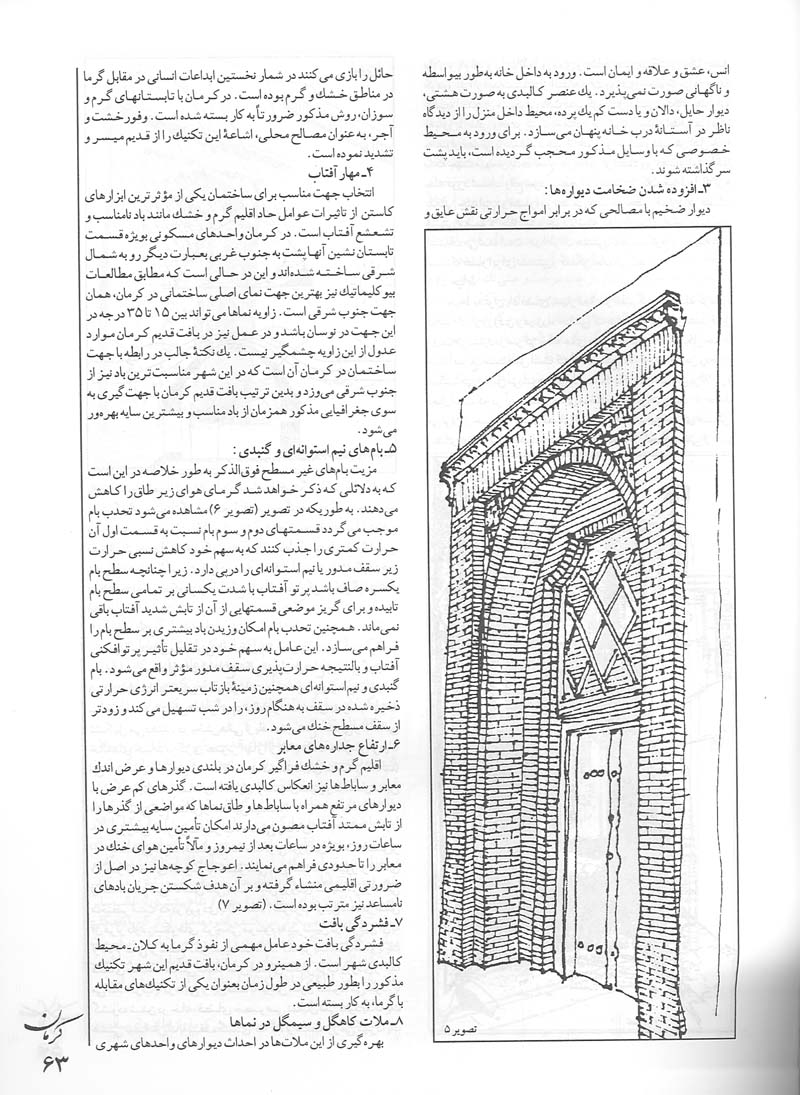 انس، عشق و علاقه و ایمان است. ورود به داخل خانه به‌طور بیواسطه
و ناگهانی صورت نمی‌پذیرد. یك عنصر کالبدی به صورت هشتی،
دیوار حایل، دالان و یا دست کم یك پرده، محیط داخل منزل را از دیدگاه
ناظر در آستانهٔ درب خانه پنهان می‌سازد. برای ورود به محیط
خصوصی که با وسایل مذکور محجب گردیده است، باید پشت
سر گذاشته شوند.
۳ـ افزوده شدن ضخامت دیواره‌ها:
دیوار ضخیم با مصالحی که در برابر امواج حرارتی نقش عایق و
تصویر ۵
حائل را بازی می‌کنند در شمار نخستین ابداعات انسانی در مقابل گرما
در مناطق خشك و گرم بوده است. در کرمان با تابستانهای گرم و
سوزان، روش مذکور ضرورتاً به کار بسته شده است. وفور خشت و
آجر، به عنوان مصالح محلی، اشاعهٔ این تکنیك را از قدیم میسر و
تشدید نموده است.
۴ـ مهار آفتاب
انتخاب جهت مناسب برای ساختمان یکی از مؤثرترین ابزارهای
کاستن از تاثیرات عوامل حاد اقلیم گرم و خشك مانند باد نامناسب و
تشعشع آفتاب است. در کرمان واحدهای مسکونی بویژه قسمت
تابستان نشین آنها پشت به جنوب غربی بعبارت دیگر رو به شمال
شرقی ساخته شده‌اند و این در حالی است که مطابق مطالعات
بیوکلیماتیك نیز بهترین جهت نمای اصلی ساختمانی در کرمان، همان
جهت جنوب شرقی است. زاویه نماها می‌تواند بین ۱۵ تا ۳۵ درجه در
این جهت در نوسان باشد و در عمل نیز در بافت قدیم کرمان موارد
عدول از این زاویه چشمگیر نیست. یك نکتهٔ جالب در رابطه با جهت
ساختمان در کرمان آن است که در این شهر مناسبت‌ترین باد نیز از
جنوب شرقی می‌وزد و بدین ترتیب بافت قدیم کرمان با جهت گیری به
سوی جغرافیایی مذکور همزمان از باد مناسب و بیشترین سایه بهره‌ور
می‌شود.
۵ـ بام‌های نیم استوانه‌ای و گنبدی:
مزیت بام‌های غیر مسطح فوق‌الذکر به طور خلاصه در این است
که به دلائلی که ذکر خواهد شد گرمای هوای زیر طاق را کاهش
می‌دهند. به طوریکه در تصویر (تصویر ۶) مشاهده می‌شود تحدب بام
موجب می گردد قسمتهای دوم و سوم بام نسبت به قسمت اول آن
حرارت کمتری را جذب کنند که به سهم خود کاهش نسبی حرارت
زیر سقف مدور یا نیم استوانه‌ای را درپی دارد. زیرا چنانچه سطح بام
یکسره صاف باشد پرتو آفتاب با شدت یکسانی بر تمامی سطح بام
تابیده و برای گریز موضعی قسمتهایی از آن از تابش شدید آفتاب باقی
نمی‌ماند. همچنین تحدب بام امکان وزیدن باد بیشتری بر سطح بام را
فراهم می‌سازد. این عامل به سهم خود در تقلیل تأثیر پرتوافکنی
آفتاب و بالنتیجه حرارت‌پذیری سقف مدور مؤثر واقع می‌شود. بام
گنبدی و نیم استوانه‌ای همچنین زمینهٔ بازتاب سریعتر انرژی حرارتی
ذخیره شده در سقف به هنگام روز، را در شب تسهیل می‌کند و زودتر
از سقف مسطح خنك می‌شود.
۶ـ ارتفاع جداره‌های معابر
اقلیم گرم و خشك فراگیر کرمان در بلندی دیوارها و عرض اندك
معابر و ساباط‌ها نیز انعکاس کالبدی یافته است. گذرهای کم عرض با
دیوارهای مرتفع همراه با ساباط‌ها و طاق‌نماها که مواضعی از گذرها را
از تابش ممتد آفتاب مصون می‌دارند امکان تأمین سایه بیشتری در
ساعات روز، بویژه در ساعات بعد از نیمروز و مآلاً تأمین هوای خنك در
معابر را تا حدودی فراهم می‌نمایند. اعوجاج کوچه‌ها نیز در اصل از
ضرورتی اقلیمی منشاء گرفته و بر آن هدف شکستن جریان بادهای
نامساعد نیز مترتب بوده است. (تصویر ۷)
۷ـ فشردگی بافت
فشردگی بافت خود عامل مهمی از نفوذ گرما به کلان ـ محیط
کالبدی شهر است. از همینرو در کرمان، بافت قدیم این شهر تکنیك
مذکور را بطور طبیعی در طول زمان بعنوان یکی از تکنیك‌های مقابله
با گرما، به کار بسته است.
۸ـ ملات کاهگل و سیمگل در نماها
بهره گیری از این ملات‌ها در احداث دیوارهای واحدهای شهری
کرمان
۶۳